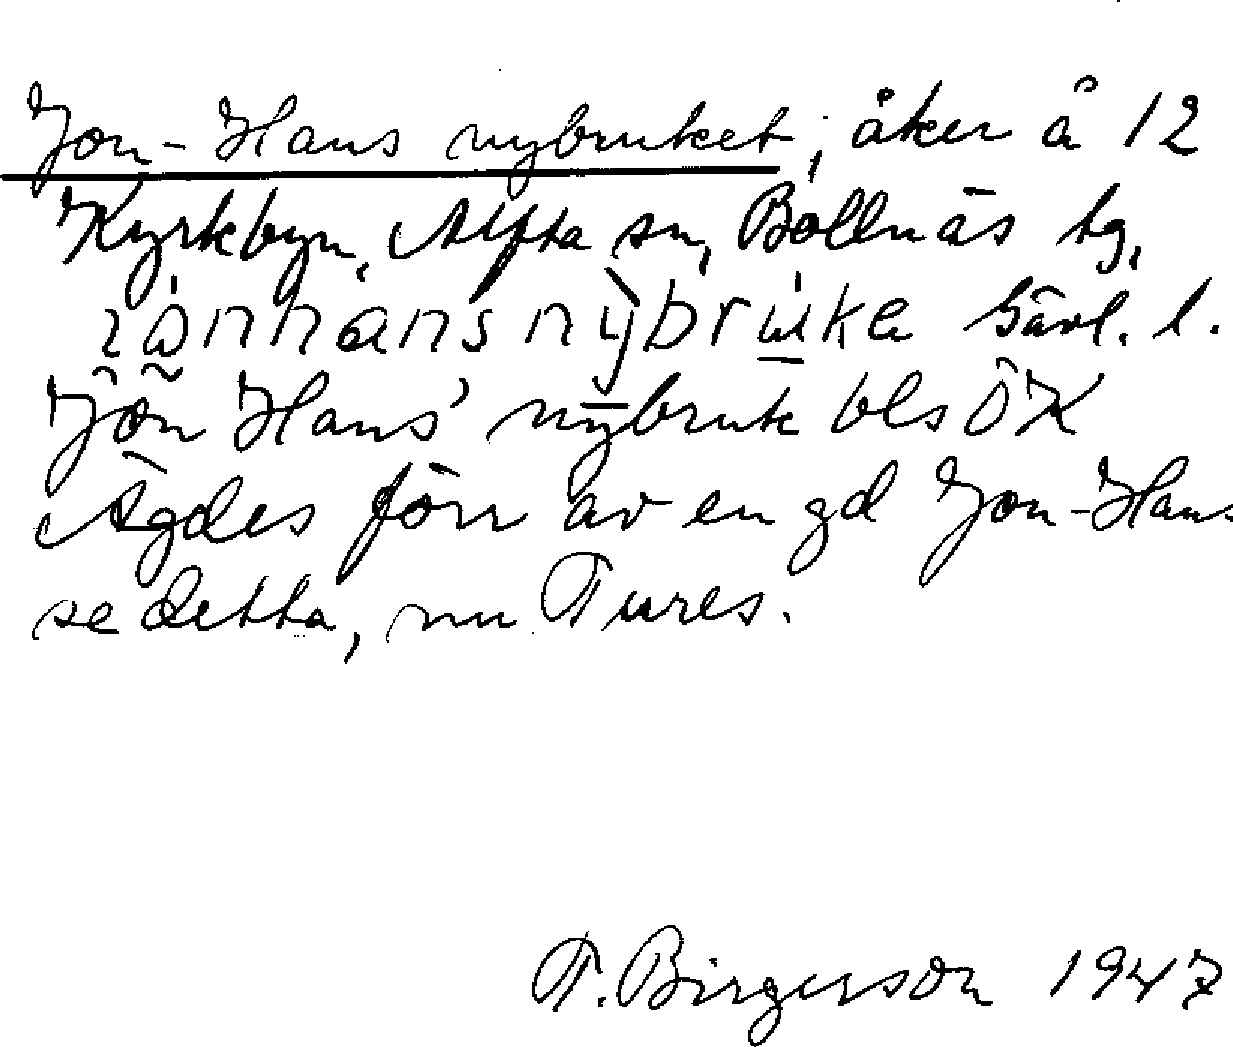 Jon-Hans nybruket, åker å 12
Kyrkbyn, Alfta sn, Bollnäs tg,
Gävl. l.
Jön Hans' nybruk bls ÖK
Ägdes förr av en gd Jon-Hans
se detta, nu Tures.
T. Birgerson 1947